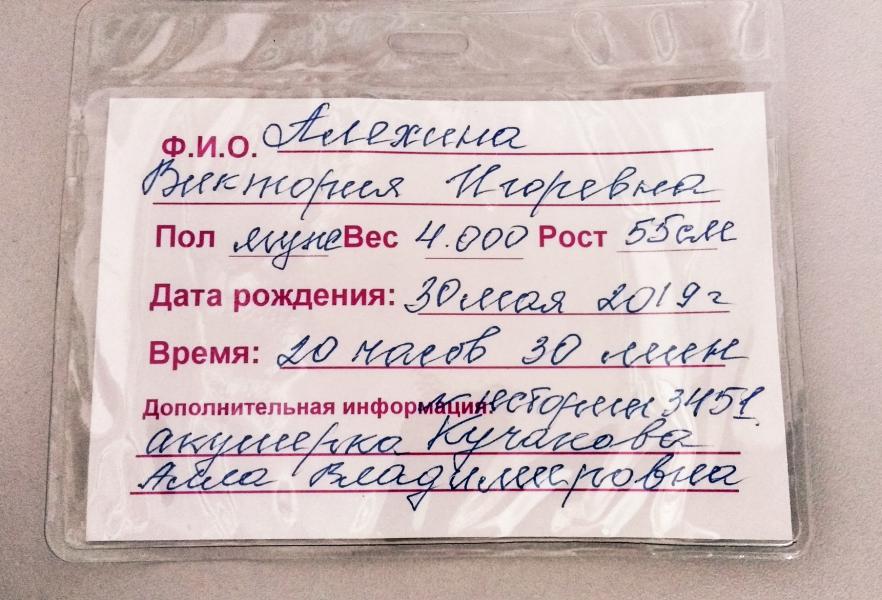 Ф.И.О. Алехина
Виктория Игоревна
Пол муж Вес 4.000 Рост 55см
Дата рождения: 30 мая 2019 г
Время: 20 часов 30 мин
Дополнительная информация: № истории 3451
акушерка Кучакова
Алла Владимировна